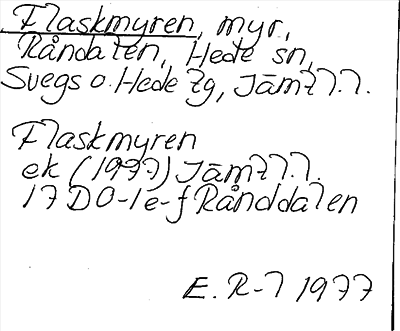 Flaskmyren, myr.,
Råndalen, Hede sn,
Svegs o. Hede tg, Jämtl.l.
Flaskmyren
ek (1977) Jämtl.l.
17 D 0-1 e-f Rånddalen
E. R-l 1977